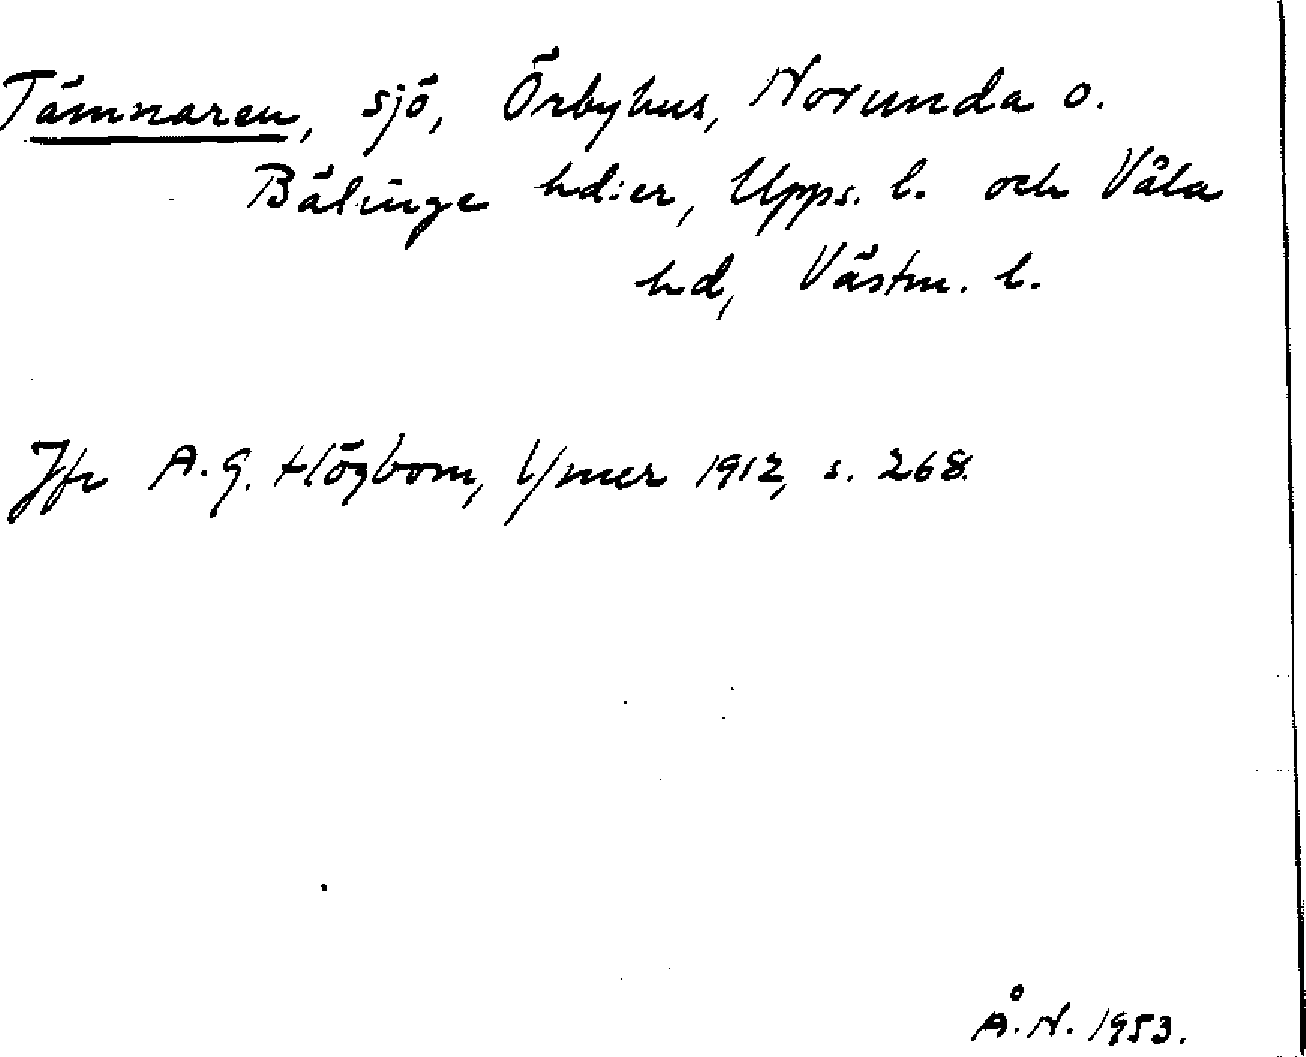 Tämnaren, sjö, Örbyhus, Norunda o.
Bälinge hd:er, Upps. l. och Våla
hd, Västm. l.
Jfr A. G. Högbom, Ymer 1912, s. 268.
Å. N. 1953.